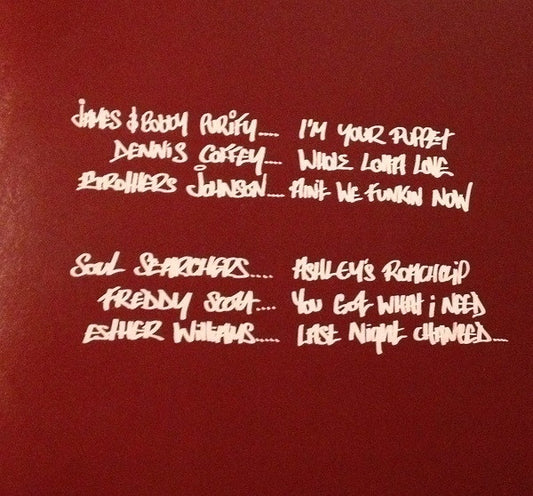 James & Bobby Purify..... I'm Your Puppet
Dennis Coffey.... Whole Lotta Love
Brothers Johnson.... Ain't We Funkin Now
Soul Searchers..... Ashley's Roachclip
Freddy Scott.... You Got What i Need
Esther Williams..... Last Night Changed....